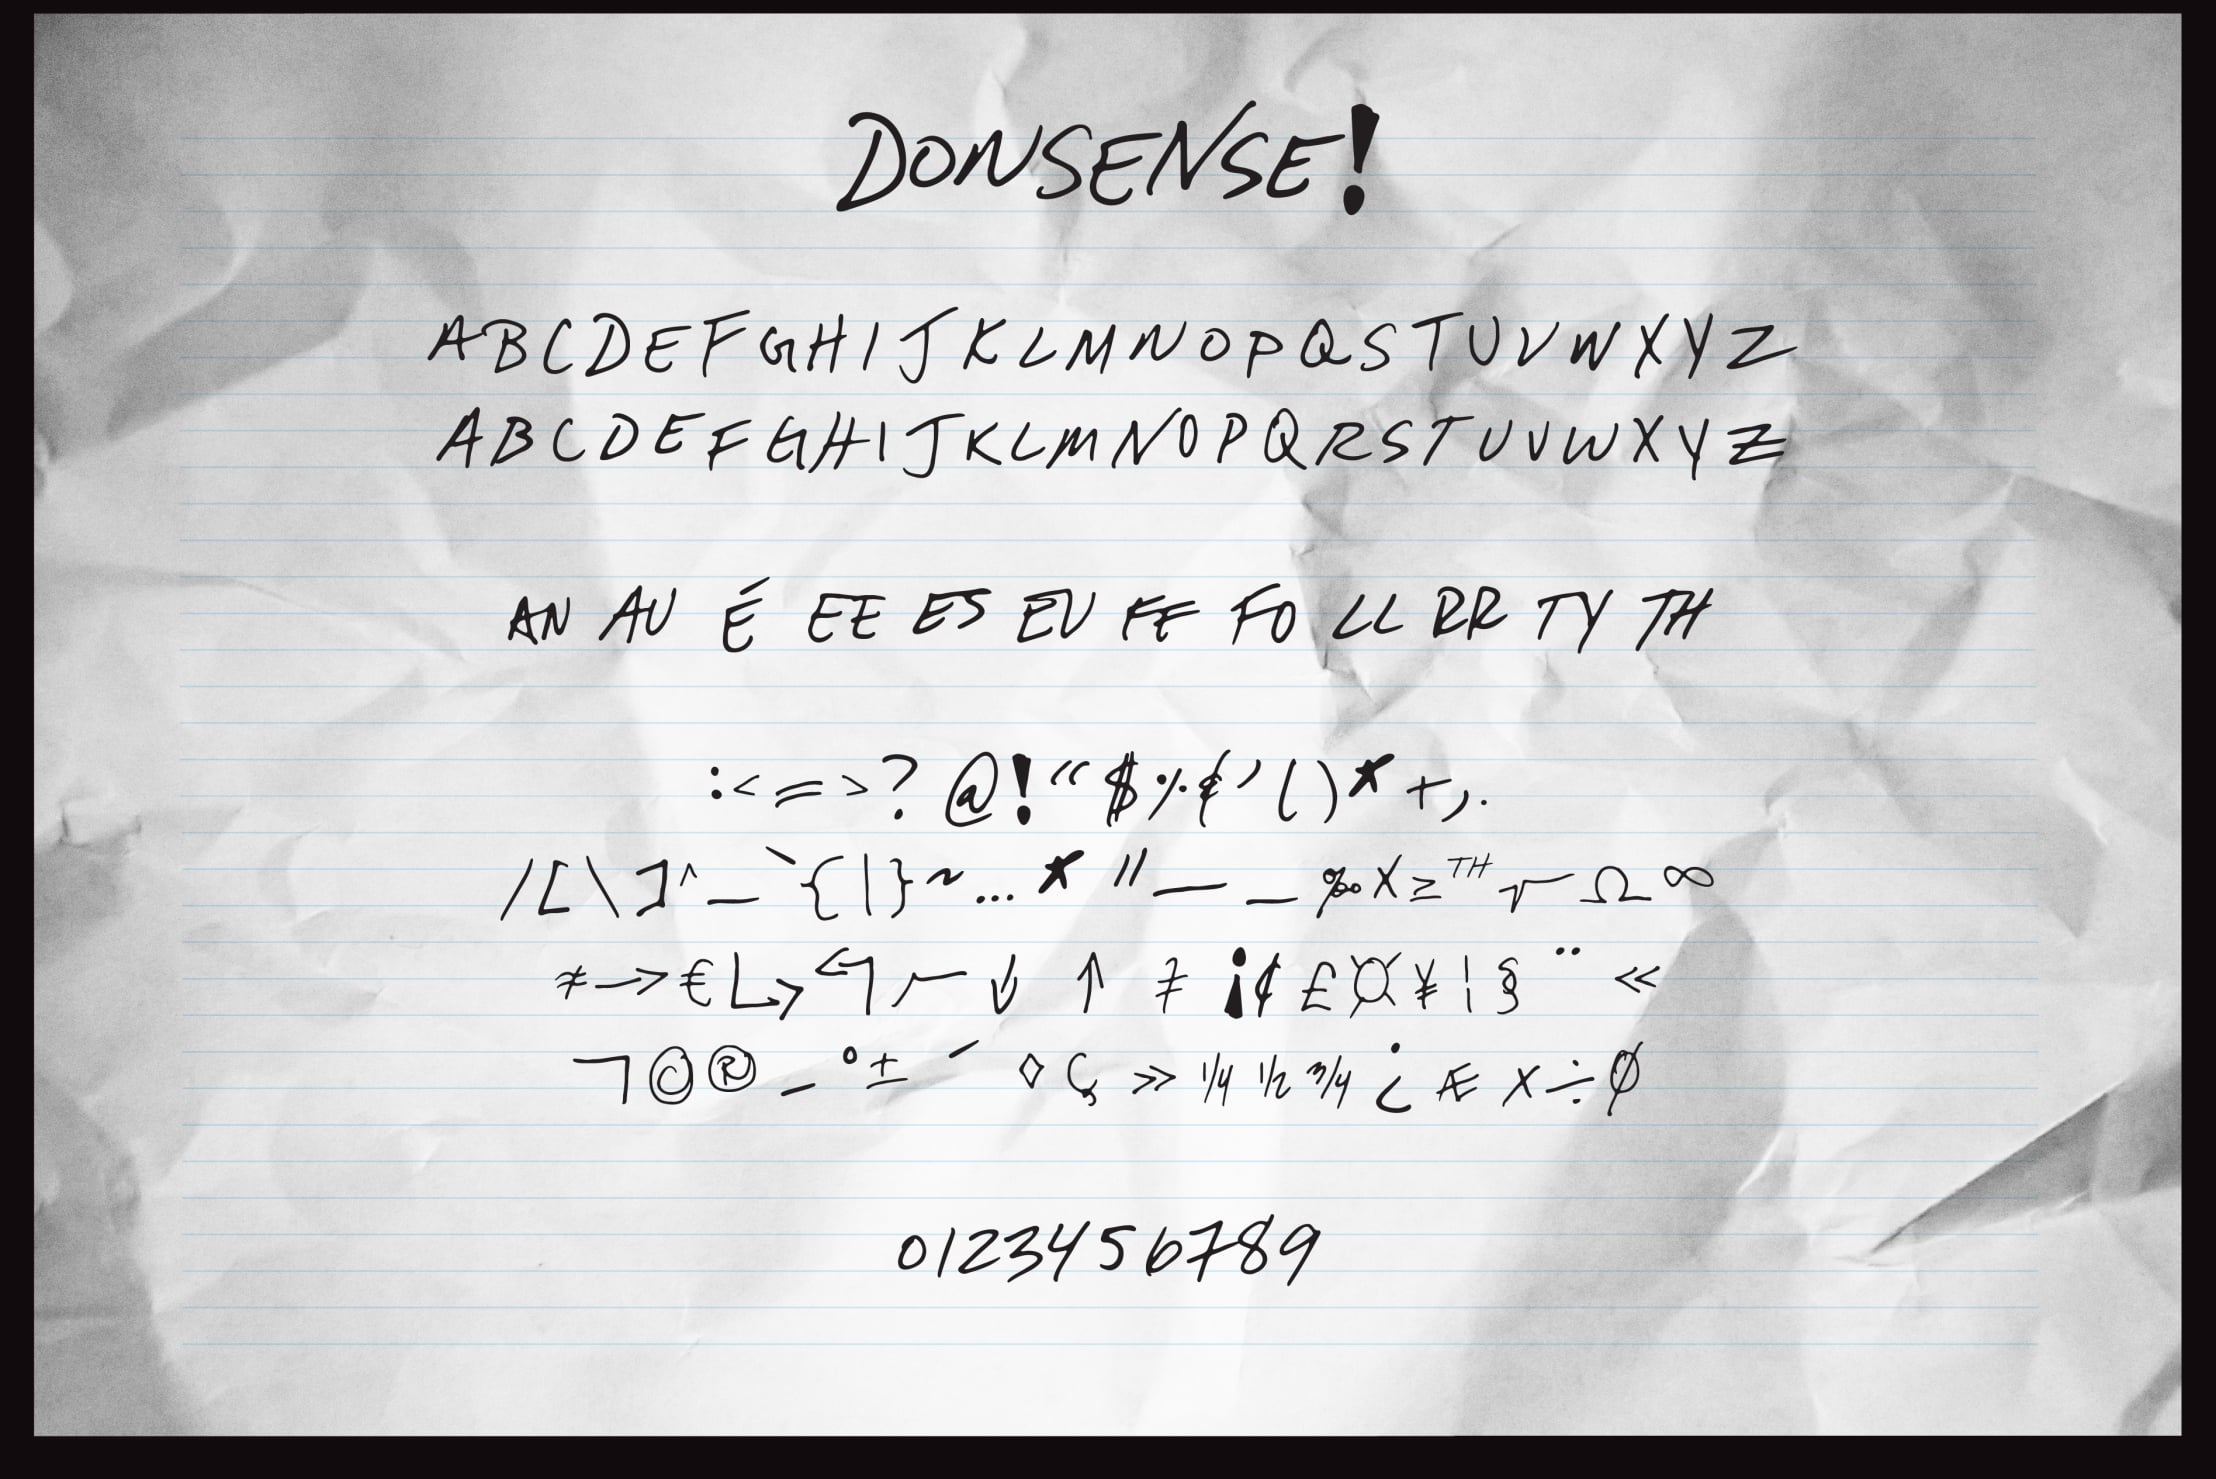 DONSENSE!
ABCDEFGHIJKLMNOPQSTUVWXYZ
ABCDEFGHIJKLMNOPQRSTUVWXYZ
AN AU É EE ES EU FF FO LL RR TY TH
:<=>?@!“$%&’()*+,.
/[\]^_`{|}~…* "—_‰X≥TH√Ω∞
≠→€↳↰⌐↓ ↑ ‡ ¡¢£¤¥¦§¨ «
¬©®–°±´ ◊ Ç » ¼ ½ ¾ ¿ Æ ×÷Ø
0123456789